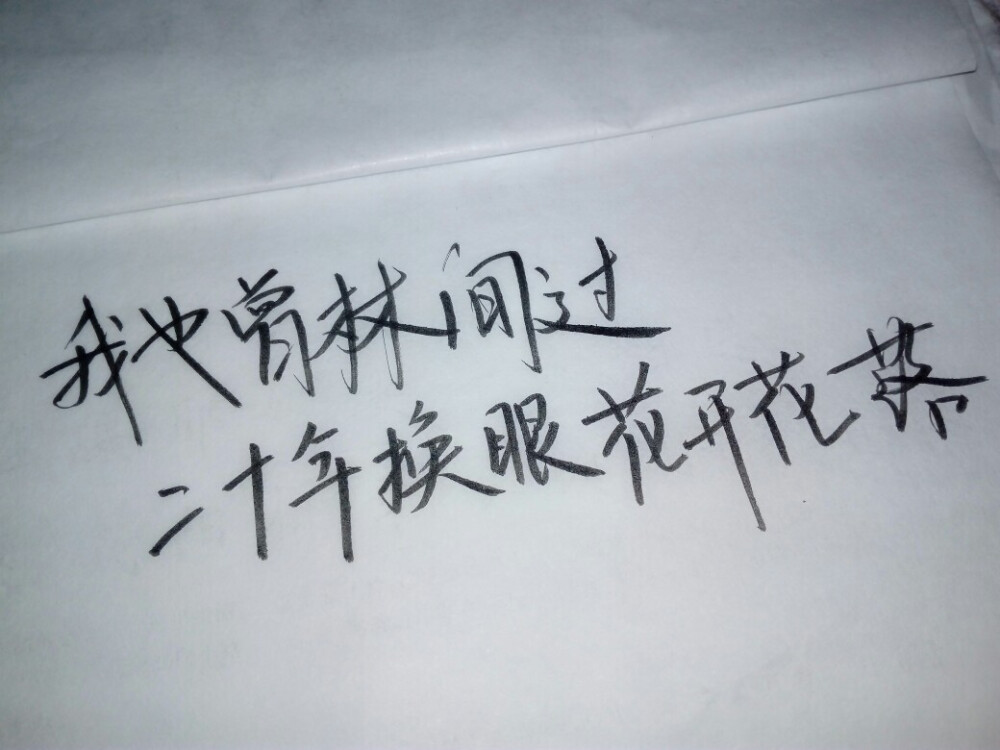 我也曾林间过
二十年换眼花开花落